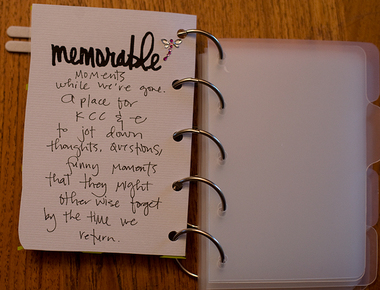 memorable
moments
while we're gone.
A place for
KCC & -e
to jot down
thoughts, questions,
funny moments
that they might
otherwise forget
by the time we
return.